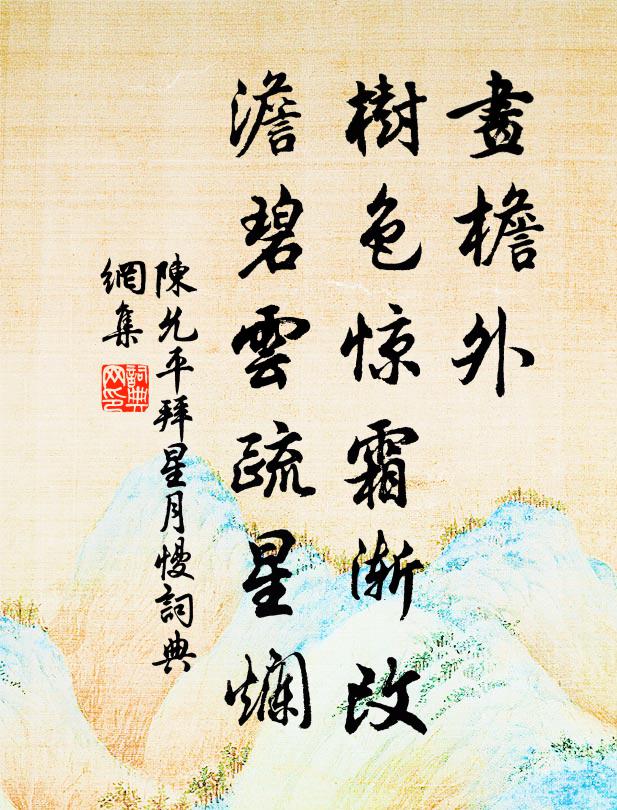 畫檐外
樹色惊霜渐改
澹碧雲疏星爛
陳允平拜星月慢詞典
網集
詞典網印